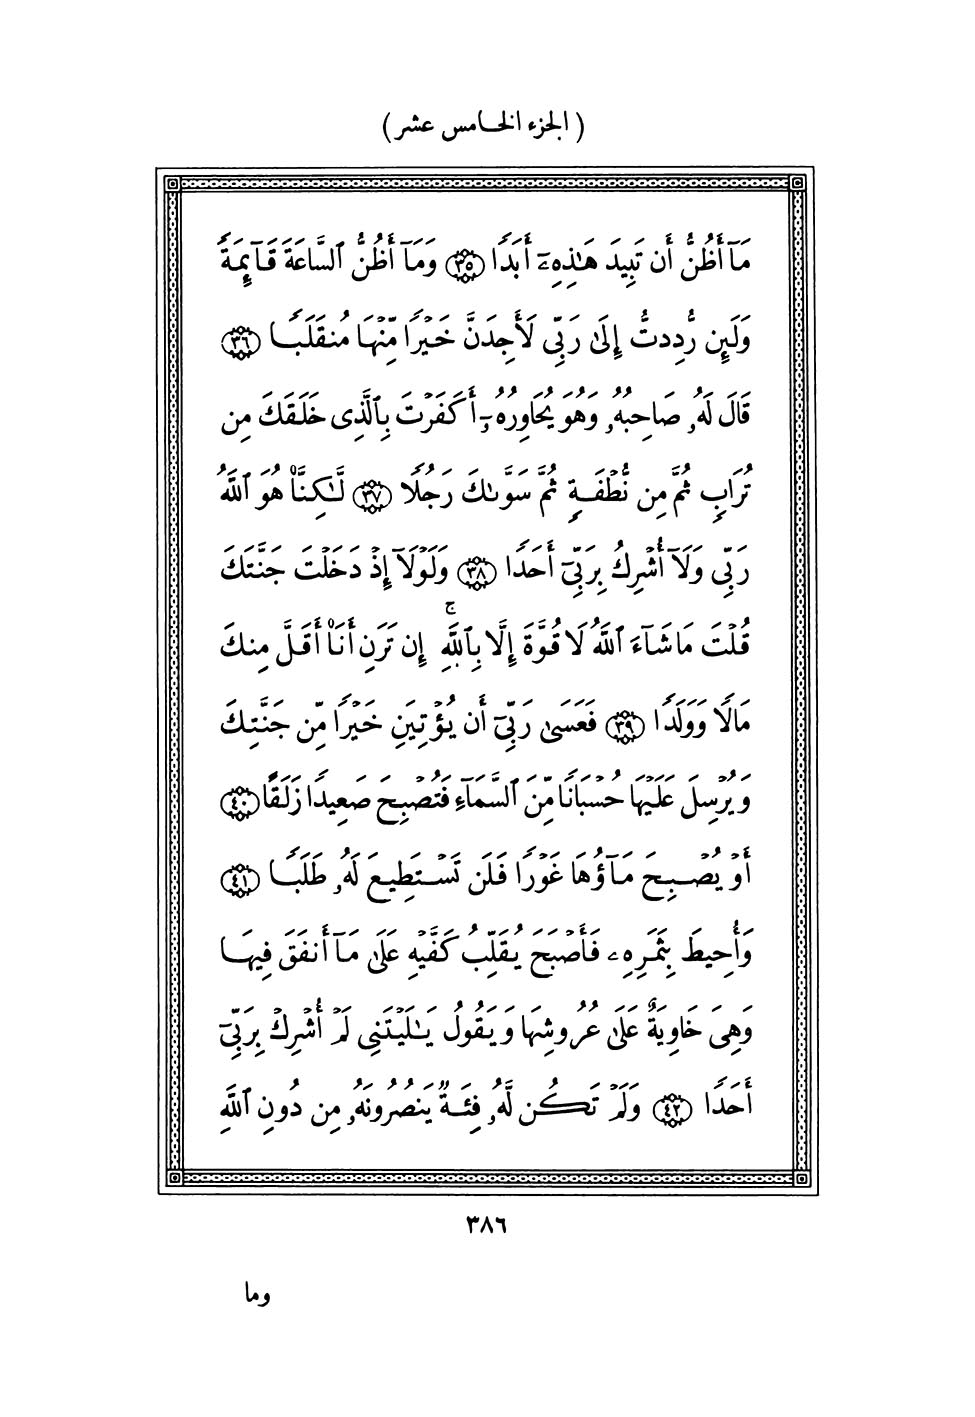 ( الجزء الخامس عشر )
مَآ أَظُنُّ أَن تَبِيدَ هَٰذِهِۦٓ أَبَدًا ٣٥ وَمَآ أَظُنُّ ٱلسَّاعَةَ قَآئِمَةً
وَلَئِن رُّدِدتُّ إِلَىٰ رَبِّى لَأَجِدَنَّ خَيْرًا مِّنْهَا مُنقَلَبًا ٣٦
قَالَ لَهُۥ صَاحِبُهُۥ وَهُوَ يُحَاوِرُهُۥٓ أَكَفَرْتَ بِٱلَّذِى خَلَقَكَ مِن
تُرَابٍ ثُمَّ مِن نُّطْفَةٍ ثُمَّ سَوَّىٰكَ رَجُلًا ٣٧ لَّٰكِنَّا۠ هُوَ ٱللَّهُ
رَبِّى وَلَآ أُشْرِكُ بِرَبِّىٓ أَحَدًا ٣٨ وَلَوْلَآ إِذْ دَخَلْتَ جَنَّتَكَ
قُلْتَ مَا شَآءَ ٱللَّهُ لَا قُوَّةَ إِلَّا بِٱللَّهِ ۚ إِن تَرَنِ أَنَا۠ أَقَلَّ مِنكَ
مَالًا وَوَلَدًا ٣٩ فَعَسَىٰ رَبِّىٓ أَن يُؤْتِيَنِ خَيْرًا مِّن جَنَّتِكَ
وَيُرْسِلَ عَلَيْهَا حُسْبَانًا مِّنَ ٱلسَّمَآءِ فَتُصْبِحَ صَعِيدًا زَلَقًا ٤٠
أَوْ يُصْبِحَ مَآؤُهَا غَوْرًا فَلَن تَسْتَطِيعَ لَهُۥ طَلَبًا ٤١
وَأُحِيطَ بِثَمَرِهِۦ فَأَصْبَحَ يُقَلِّبُ كَفَّيْهِ عَلَىٰ مَآ أَنفَقَ فِيهَا
وَهِىَ خَاوِيَةٌ عَلَىٰ عُرُوشِهَا وَيَقُولُ يَٰلَيْتَنِى لَمْ أُشْرِكْ بِرَبِّىٓ
أَحَدًا ٤٢ وَلَمْ تَكُن لَّهُۥ فِئَةٌ يَنصُرُونَهُۥ مِن دُونِ ٱللَّهِ
٣٨٦
وما